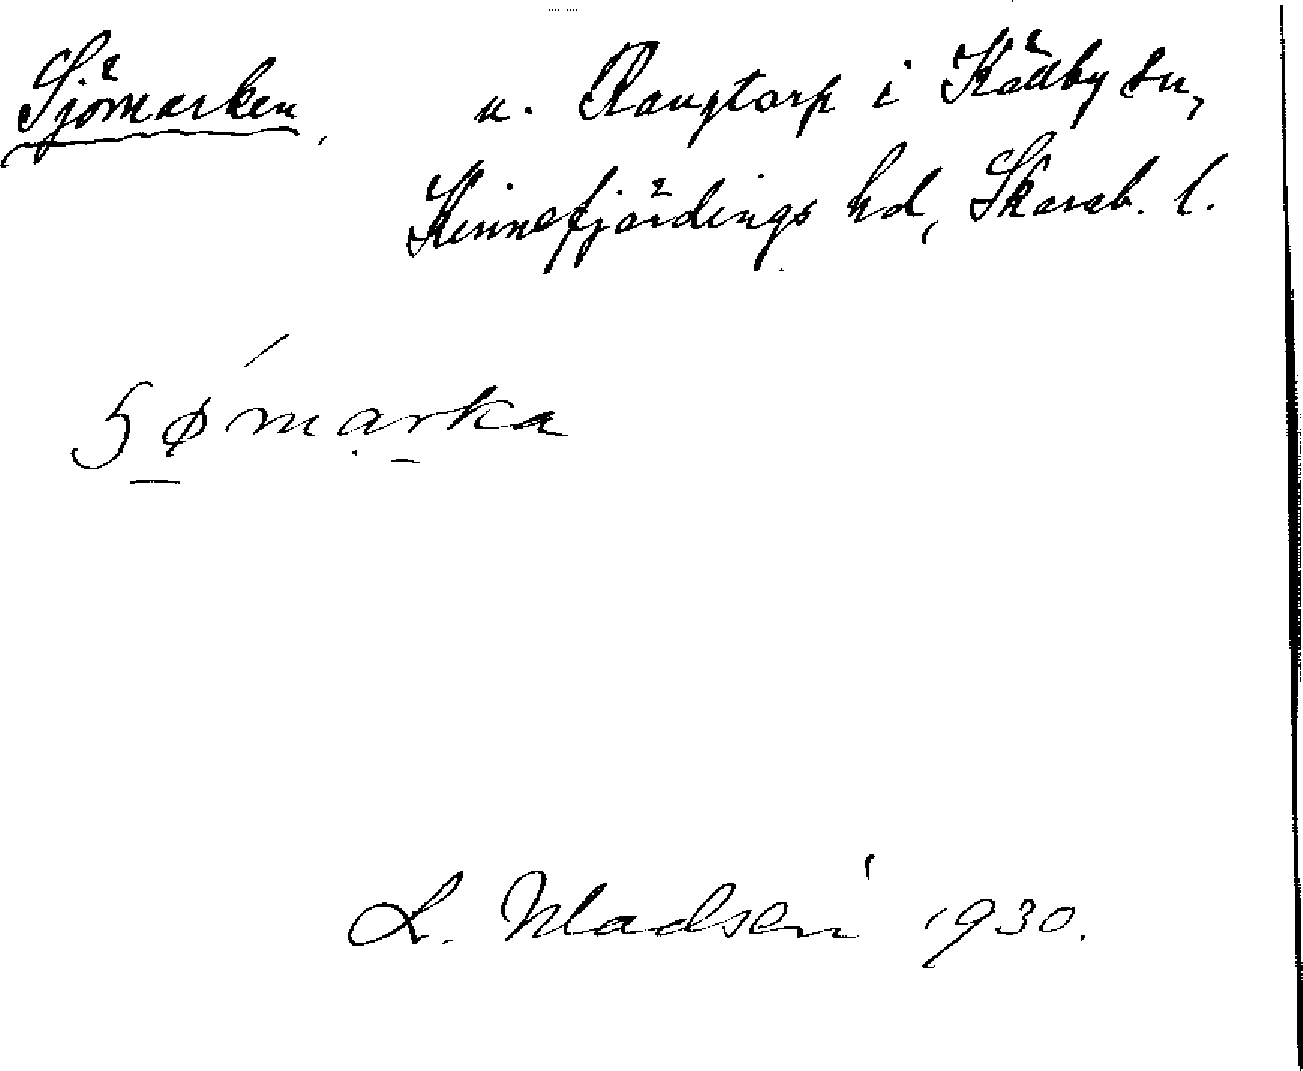 Sjömarken, u. Raugtorp i Källby sn,
Kinnefjärdings hd, Skarab. l.
Sømarka
L. Madsén 1930.